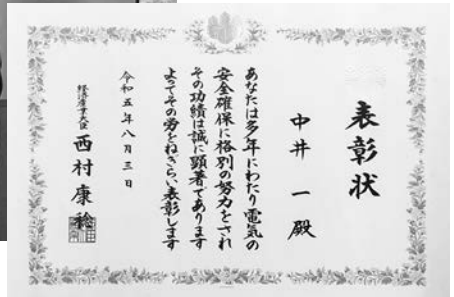 表彰状
中井 一 殿
あなたは多年にわたり電気の
安全確保に格別の努力をされ
その功績は誠に顕著であります
よってその労をねぎらい表彰します
令和五年八月三日
経済産業大臣 西村康稔